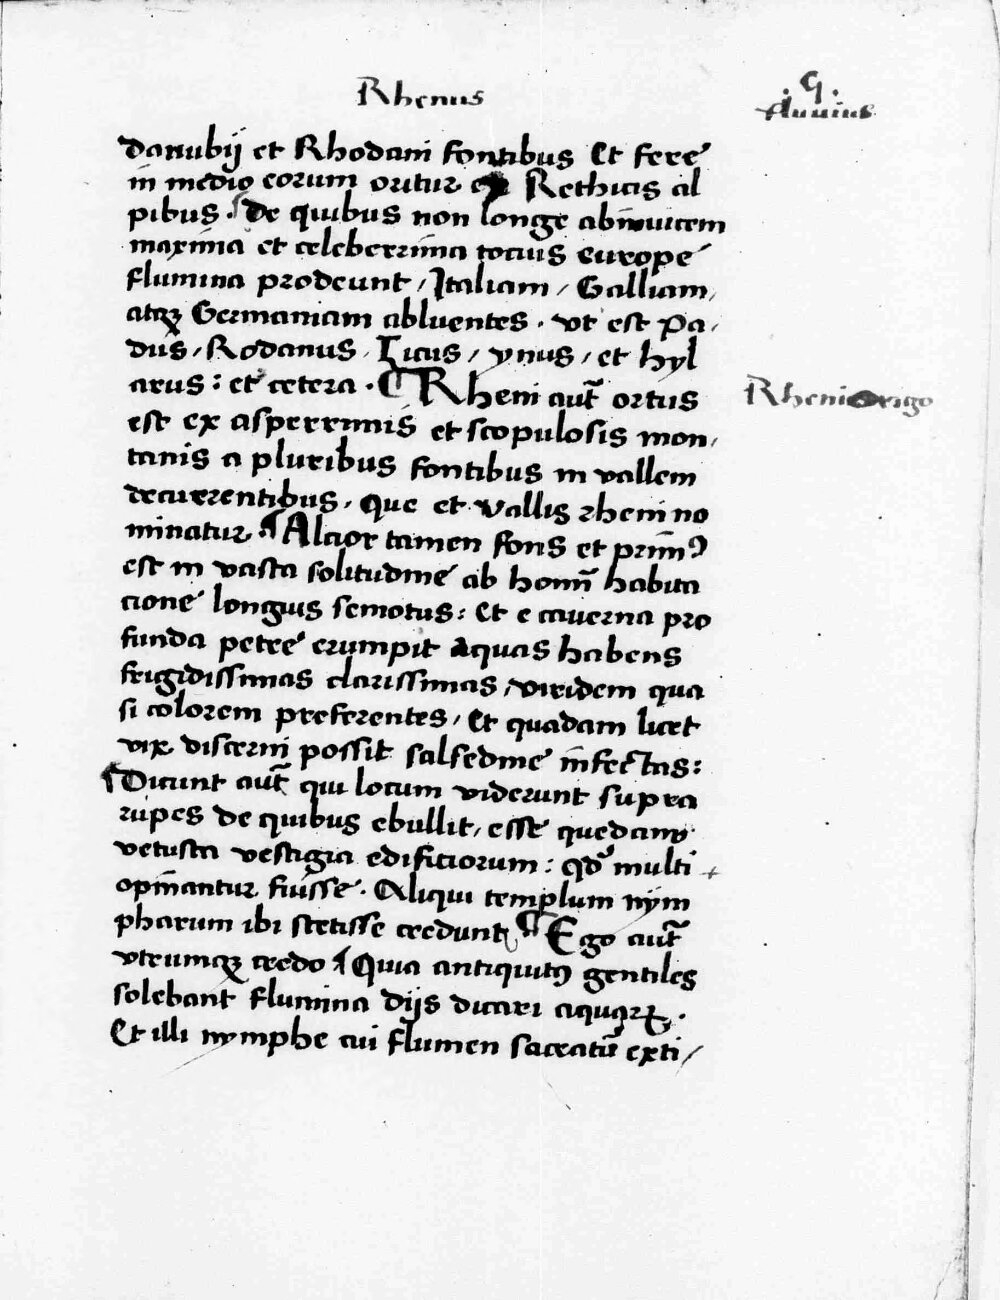 Rhenus
.9.
fluuius
danubij et Rhodani fontibus Et fere
in medio eorum oritur ex Rethicis al
pibus. De quibus non longe abinuicem
maxima et celeberrima tocius europe
flumina prodeunt / Italiam / Galliam,
atqꝫ Germaniam abluentes. vt est Pa,
dus / Rodanus, Licus / ynus / et hyl
arus: et cetera. ¶ Rheni aut̄ ortus
Rheni Origo
est ex asperrimis et scopulosis mon,
tanis a pluribus fontibus in vallem
decurrentibus, Que et vallis rheni no
minatur. ¶ Alcior tamen fons et prim̄ꝰ
est in vasta solitudine ab homī habita
cione longius semotus: Et e cauerna pro
funda petre erumpit aquas habens
frigidissimas clarissimas, viridem qua
si colorem preferentes, Et quadam licet
vix discerni possit salsedine īnfectas:
¶ Dicunt aut̄ qui locum viderunt supra
rupes de quibus ebullit, esse quedam
vetusta vestigia edificiorum: qd̓ multi
opinantur fuisse. Aliqui templum nym
pharum ibi stetisse credunt ¶ Ego aut̄
vtrumqꝫ credo ¶ Quia antiquitꝰ gentiles
solebant flumina dijs dicari aquarꝝ.
Et illi nymphe cui flumen sacratū exti /